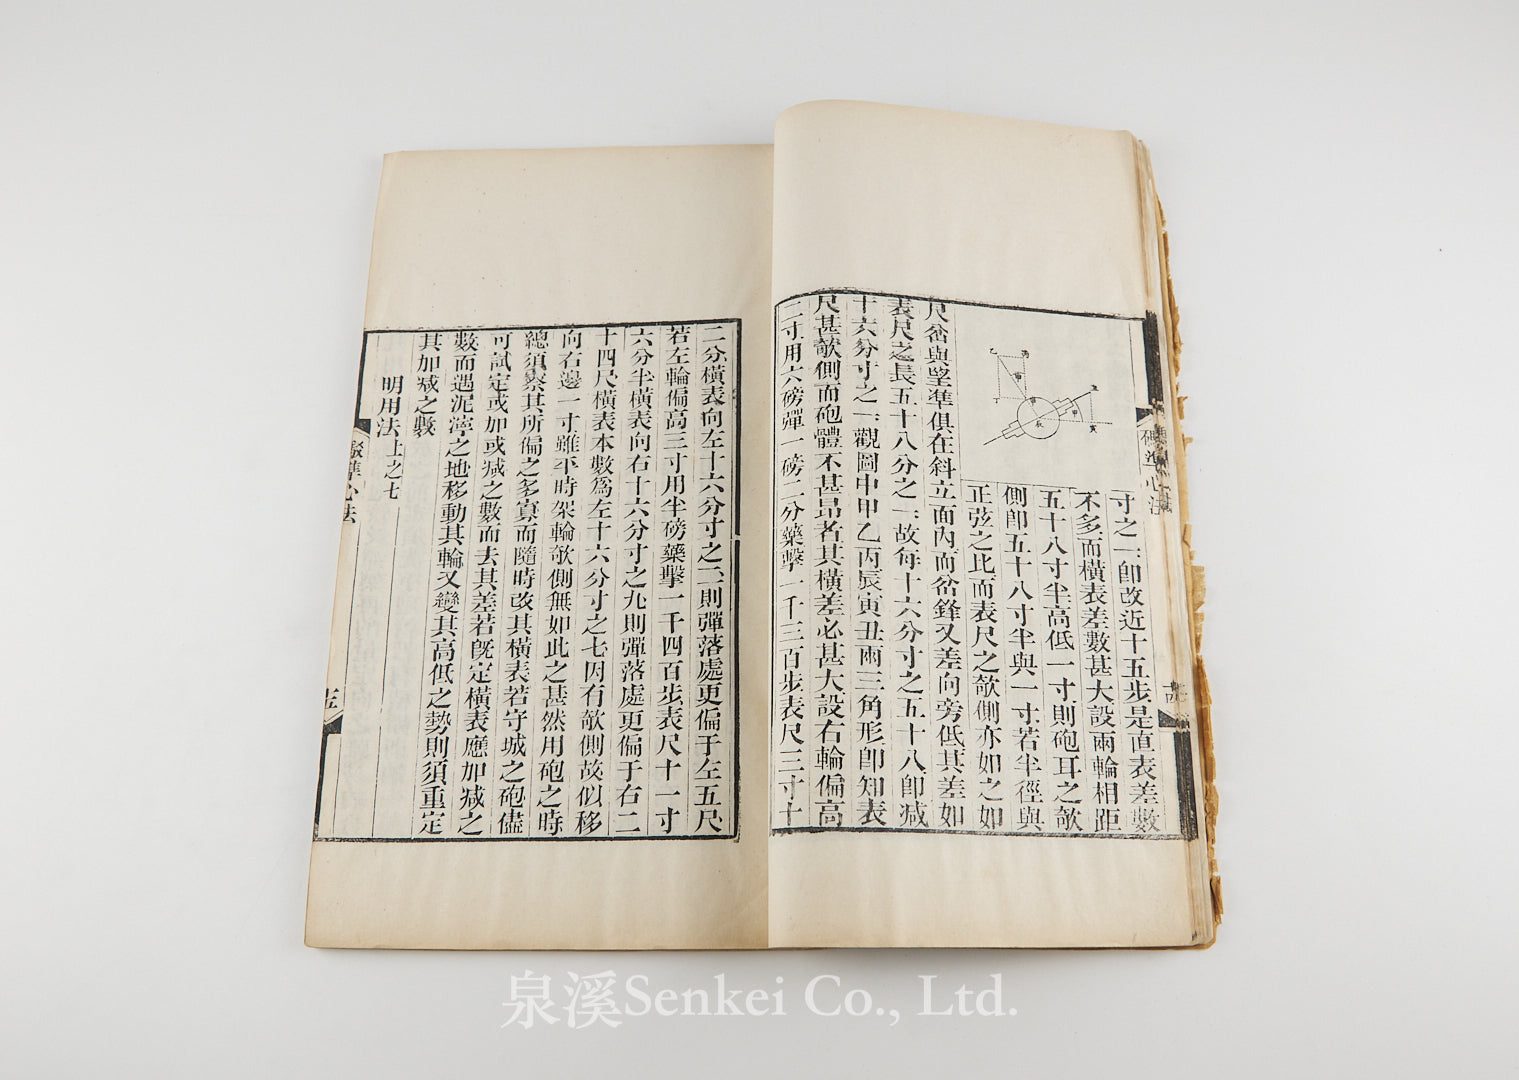 寸之一即改近十五步是直表差數
不多而橫表差數甚大設兩輪相距
五十八寸半高低一寸則砲耳之欹
側卽五十八寸半與一寸若半徑與
正弦之比而表尺之欹側亦如之如
尺岔與望準俱在斜立面內而岔鋒又差向旁低其差如
表尺之長五十八分之一故每十六分寸之五十八卽減
十六分寸之一觀圖中甲乙丙辰寅丑兩三角形卽知表
尺甚欹側而砲體不甚昂者其橫差必甚大設右輪偏高
二寸用六磅彈一磅二分藥擊一千三百步表尺三寸十
砲準心法
二分橫表向左十六分寸之二則彈落處更偏于左五尺
若左輪偏高三寸用半磅藥擊一千四百步表尺十一寸
六分半橫表向右十六分寸之九則彈落處更偏于右二
十四尺橫表本數爲左十六分寸之七因有欹側故似移
向右邊一寸雖平時架輪欹側無如此之甚然用砲之時
總須察其所偏之多寡而隨時改其橫表若守城之砲儘
可試定或加或減之數而去其差若旣定橫表應加減之
數而遇泥濘之地移動其輪又變其高低之勢則須重定
其加減之數
明用法上之七
砲準心法
十五
泉溪Senkei Co., Ltd.